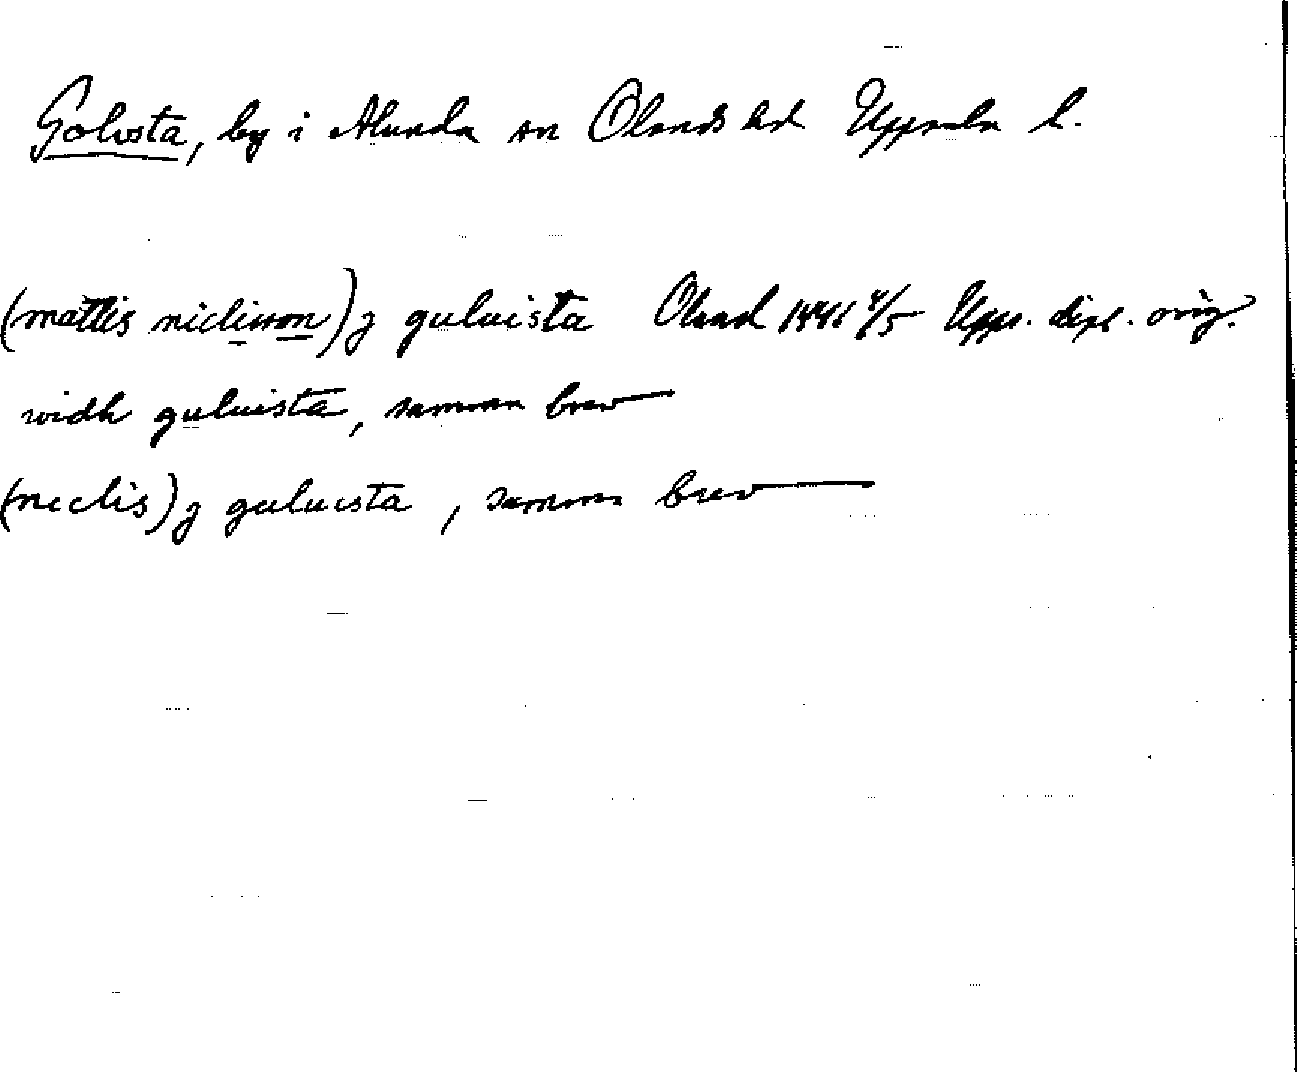 Golvsta, by i Alunda sn Olands hd Uppsala l.
(mattis niclisson) j guluista Oland 1441 4/5 Upps. dipl. orig.
widh guluista, samma brev
(neclis) j guluista, samma brev